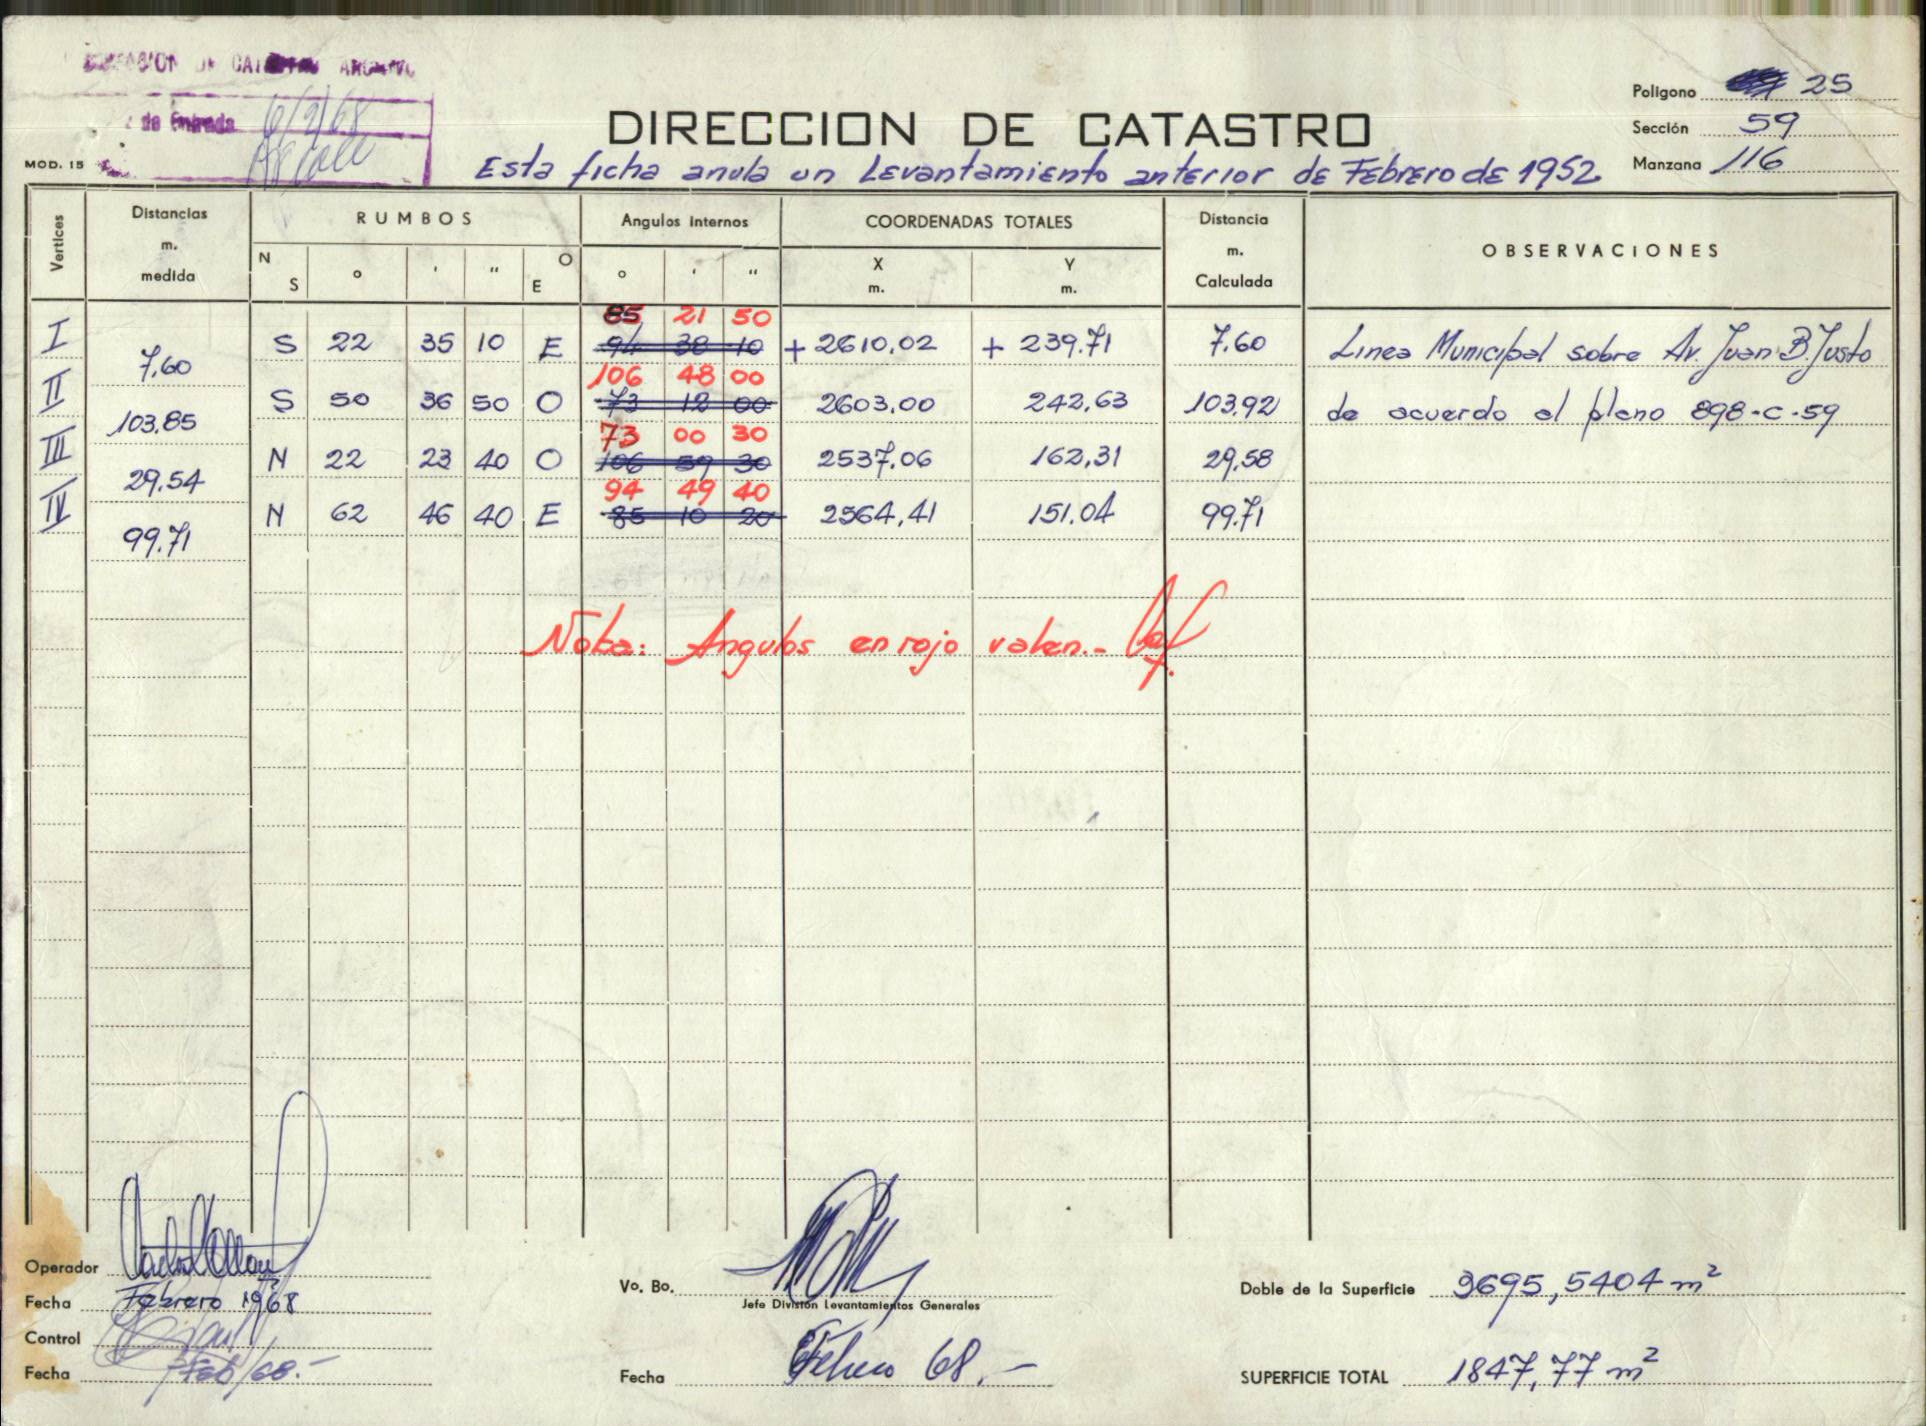 DIVISION DE CATASTRO ARCHIVO
de Entrada 6/2/68
Poligono 25
Sección 59
Manzana 116
DIRECCION DE CATASTRO
MOD. 15
Esta ficha anula un Levantamiento anterior de Febrero de 1952
Vertices Distancias m. medida RUMBOS Angulos internos COORDENADAS TOTALES Distancia m. Calculada OBSERVACIONES
N S o ' " O E o ' " X m. Y m.
85 21 50
I S 22 35 10 E 94 38 10 + 2610,02 + 239.71 7.60 Linea Municipal sobre Av. Juan B. Justo
7,60
106 48 00
II S 50 36 50 O 73 12 00 2603,00 242,63 103,92 de acuerdo al plano 898-C-59
103,85
73 00 30
III N 22 23 40 O 106 59 30 2537,06 162,31 29,58
29,54
94 49 40
IV N 62 46 40 E 85 10 20 2564,41 151.04 99.71
99.71
Nota: Angulos en rojo valen.-
Operador
Fecha Febrero 1968
Control
Fecha 7/Feb/68.-
Vo. Bo.
Jefe División Levantamientos Generales
Fecha Febrero 68.-
Doble de la Superficie 3695,5404 m²
SUPERFICIE TOTAL 1847,77 m²